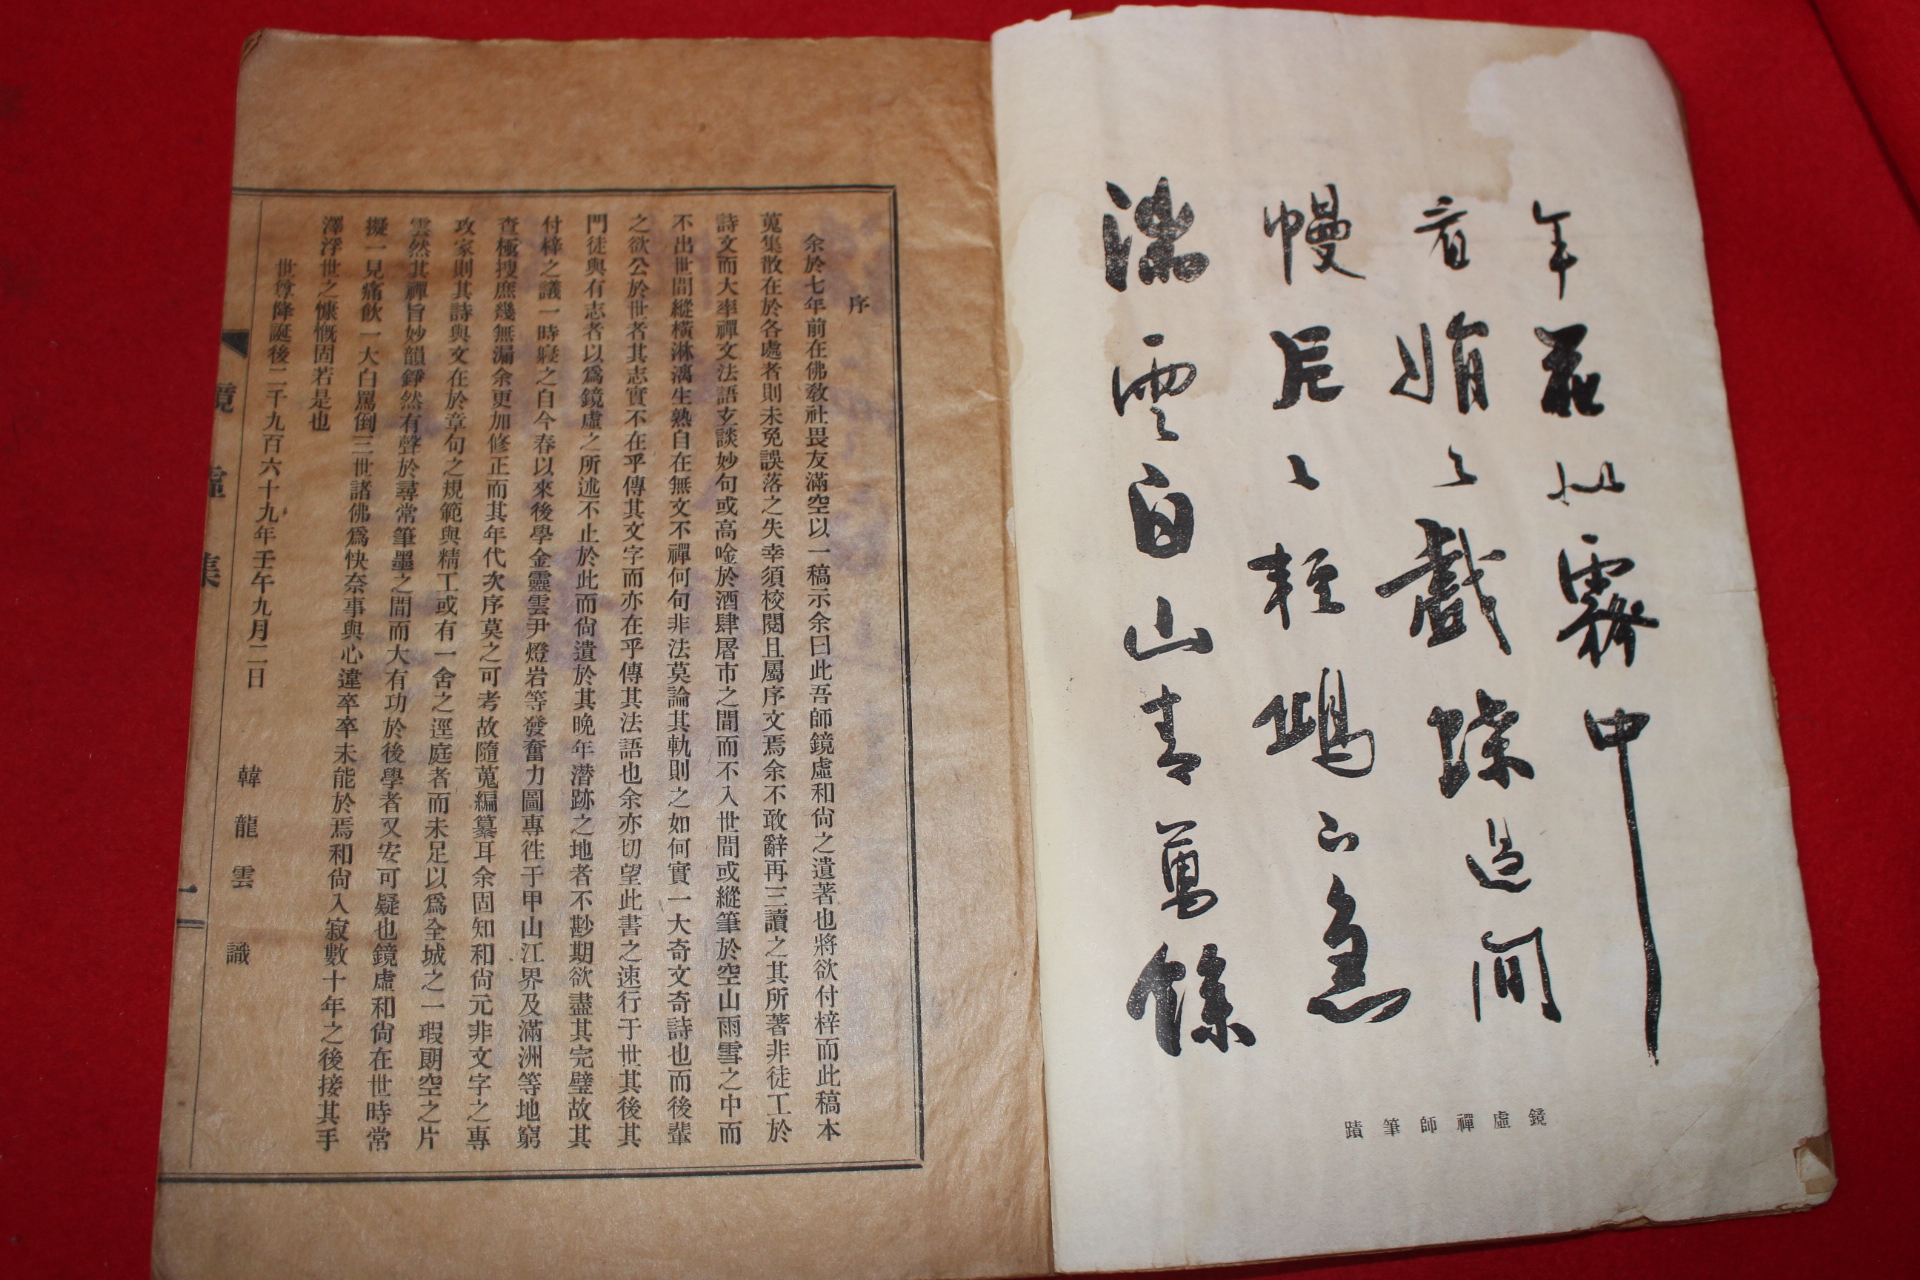 年花似霧中
看娟々戲蝶過閒
幔片々輕鷗下急
湍雲白山青萬餘
鏡虛禪師筆蹟
序
余於七年前在佛敎社畏友滿空以一稿示余曰此吾師鏡虛和尙之遺著也將欲付梓而此稿本
蒐集散在於各處者則未免誤落之失幸須校閱且屬序文焉余不敢辭再三讀之其所著非徒工於
詩文而大率禪文法語玄談妙句或高唫於酒肆屠市之間而不入世間或縱筆於空山雨雪之中而
不出世間縱橫淋漓生熟自在無文不禪何句非法莫論其軌則之如何實一大奇文奇詩也而後輩
之欲公於世者其志實不在乎傳其文字而亦在乎傳其法語也余亦切望此書之速行于世其後其
門徒與有志者以爲鏡虛之所述不止於此而尙遺於其晩年潜跡之地者不尠期欲盡其完璧故其
付梓之議一時寢之自今春以來後學金靈雲尹燈岩等發奮力圖專徃于甲山江界及滿洲等地窮
查極搜庶幾無漏余更加修正而其年代次序莫之可考故隨蒐編纂耳余固知和尙元非文字之專
攻家則其詩與文在於章句之規範與精工或有一舍之逕庭者而未足以爲全城之一瑕朗空之片
雲然其禪旨妙韻錚然有聲於尋常筆墨之間而大有功於後學者又安可疑也鏡虛和尙在世時常
擬一見痛飮一大白罵倒三世諸佛爲快奈事與心違卒卒未能於焉和尙入寂數十年之後接其手
澤浮世之慷慨固若是也
世尊降誕後二千九百六十九年壬午九月二日
韓龍雲 識
鏡虛集
一